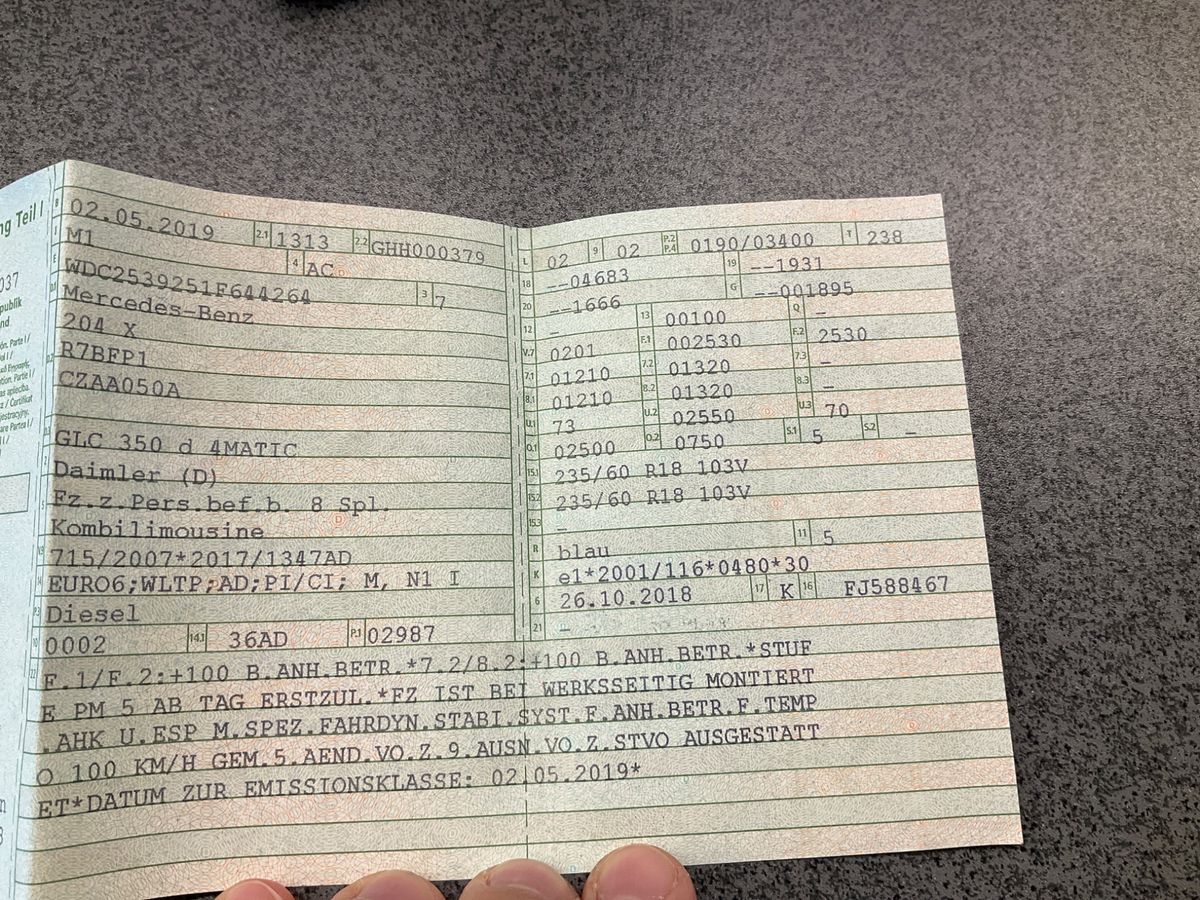 ng Teil I
037
publik
nd
B 02.05.2019 2.1 1313 2.2 GHH000379
J M1 4 AC
E WDC2539251F644264 3 7
D.1 Mercedes-Benz
204 X
D.2 R7BFP1
CZAA050A
D.3 GLC 350 d 4MATIC
2 Daimler (D)
5 Fz.z.Pers.bef.b. 8 Spl.
Kombilimousine
V.9 715/2007*2017/1347AD
14 EURO6;WLTP;AD;PI/CI; M, N1 I
P.3 Diesel
10 0002 14.1 36AD P.1 02987
L 02 9 02 P.2 P.4 0190/03400 T 238
18 --04683 19 --1931
20 --1666 G --001895
12 - 13 00100 Q -
V.7 0201 F.1 002530 F.2 2530
7.1 01210 7.2 01320 7.3 -
8.1 01210 8.2 01320 8.3 -
U.1 73 U.2 02550 U.3 70
O.1 02500 O.2 0750 S.1 5 S.2 -
15.1 235/60 R18 103V
15.2 235/60 R18 103V
15.3 -
R blau 11 5
K e1*2001/116*0480*30
6 26.10.2018 17 K 16 FJ588467
21 -
22 F.1/F.2:+100 B.ANH.BETR.*7.2/8.2:+100 B.ANH.BETR.*STUF
E PM 5 AB TAG ERSTZUL.*FZ IST BEI WERKSSEITIG MONTIERT
.AHK U.ESP M.SPEZ.FAHRDYN.STABI.SYST.F.ANH.BETR.F.TEMP
O 100 KM/H GEM.5.AEND.VO.Z.9.AUSN.VO.Z.STVO AUSGESTATT
ET*DATUM ZUR EMISSIONSKLASSE: 02.05.2019*